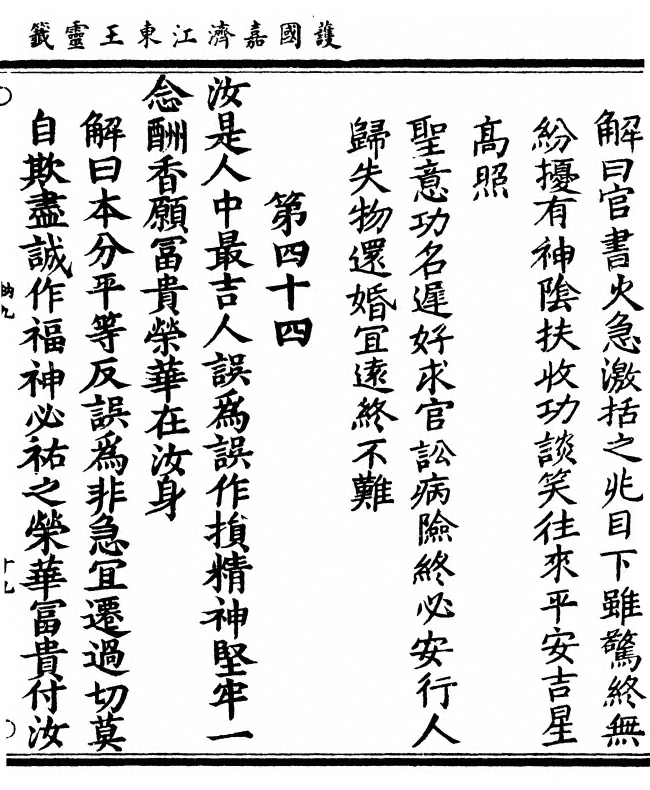 護國嘉濟江東王靈籤
解曰官書火急激括之兆目下雖驚終無
紛擾有神陰扶收功談笑往來平安吉星
高照
聖意功名遲好求官訟病險終必安行人
歸失物還婚宜遠終不難
第四十四
汝是人中最吉人誤為誤作損精神堅牢一
念酬香願冨貴榮華在汝身
解曰本分平等反誤為非急宜遷過切莫
自欺盡誠作福神必祐之榮華冨貴付汝
納九
十九